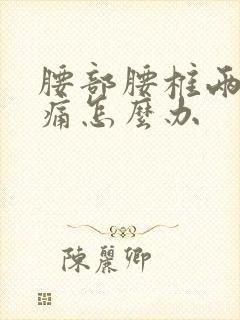 腰部腰柱兩
痛怎麼办
陳麗卿